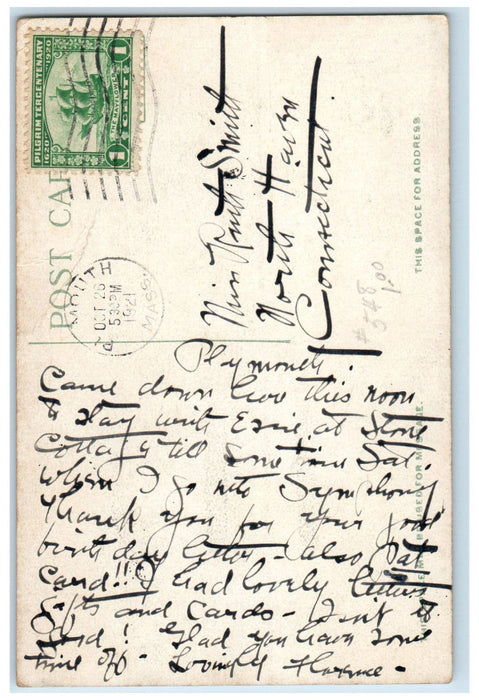 PILGRIM TERCENTENARY
1620 1920
THE MAYFLOWER
1 CENT 1
POST CAR
PLYMOUTH
OCT 26
5 30 PM
1921
MASS.
Miss Ruth Smith
North Haven
Connecticut
THIS SPACE FOR ADDRESS
#548
1.00
Plymouth.
Came down here this noon
to stay with Essie at Stone
Cottage till sometime Sat.
when I go into Symphony
Thank you for your good
birthday letter - also Pat
Card!! I had lovely letters
Gifts and Cards - Isn't it
! Glad you have some
time off - Lovingly Florence -
BE USED FOR MESSAGE.